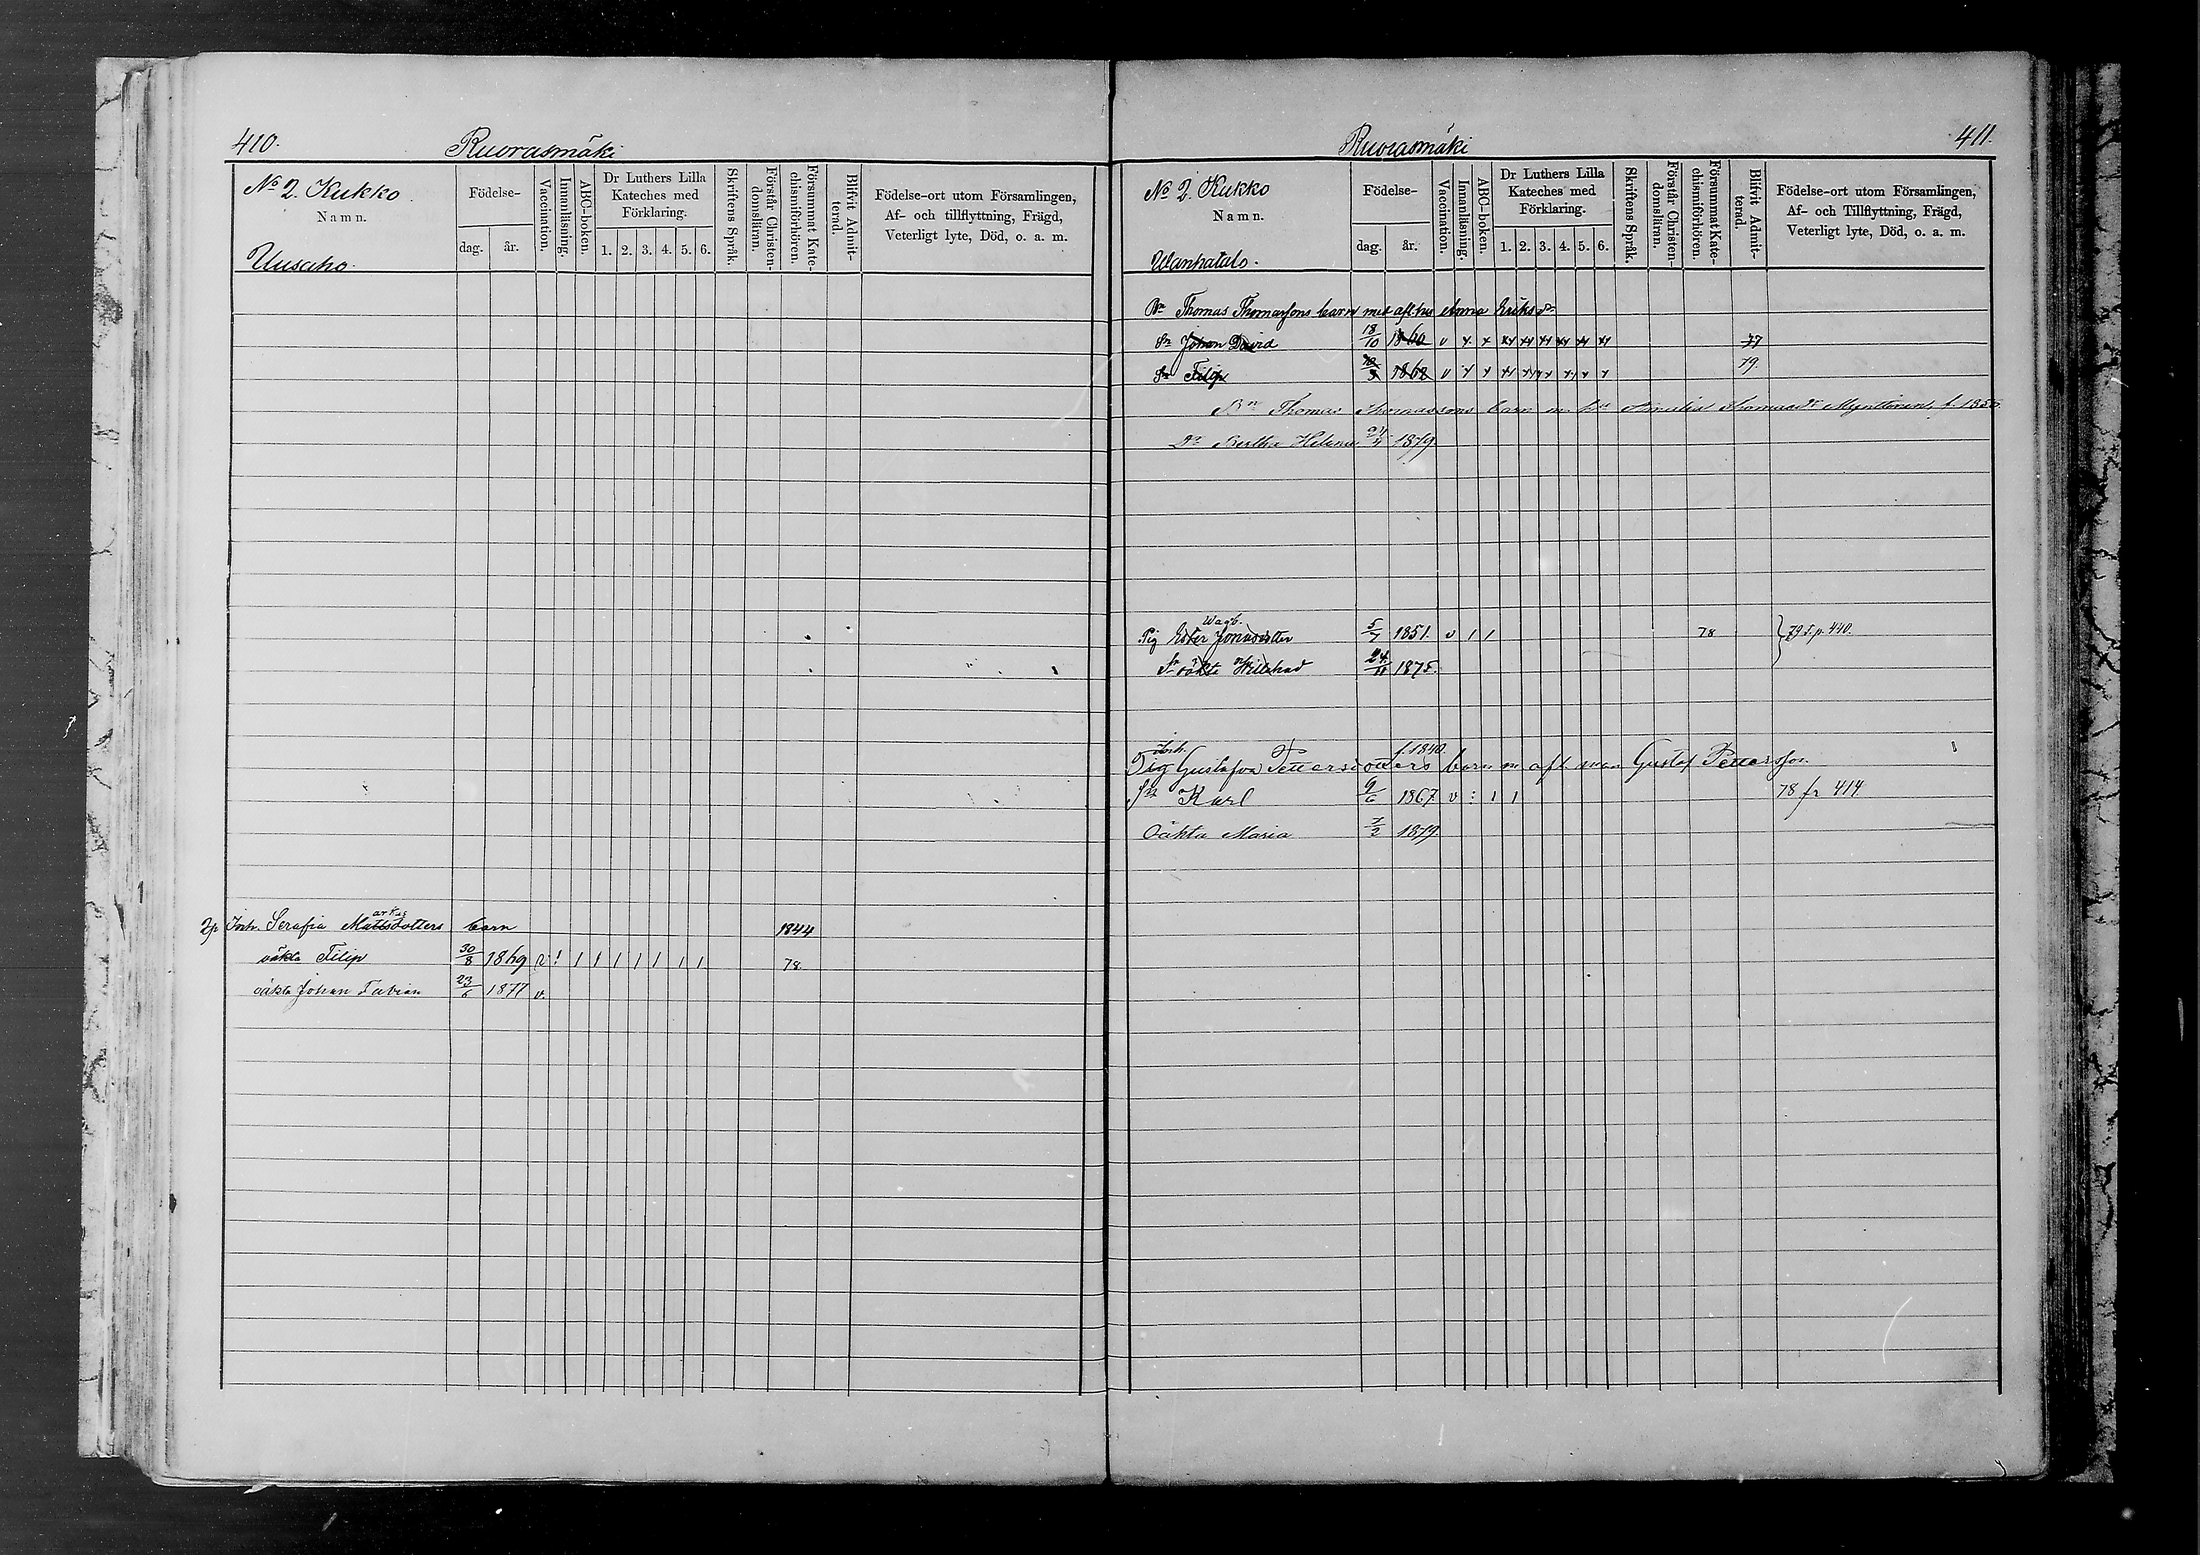 410. Ruorasmäki
No 2. Kukko.
Namn.
Uusaho.
Födelse-
dag. år.
Vaccination.
Innanläsning.
ABC-boken.
Dr Luthers Lilla
Kateches med
Förklaring.
1. 2. 3. 4. 5. 6.
Skriftens Språk.
Förstår Christen-
domsläran.
Försummat Kate-
chismiförhören.
Blifvit Admit-
terad.
Födelse-ort utom Församlingen,
Af- och tillflyttning, Frägd,
Veterligt lyte, Död, o. a. m.
Inh. Serafia Mattsdotters barn 1844
oäkta Filip 30/8 1869 v ! / / / / / / / 78.
oäkta Johan Fabian 23/6 1877 v.
Ruorasmäki 411.
No 2. Kukko
Namn.
Wanhatalo.
Födelse-
dag. år.
Vaccination.
Innanläsning.
ABC-boken.
Dr Luthers Lilla
Kateches med
Förklaring.
1. 2. 3. 4. 5. 6.
Skriftens Språk.
Förstår Christen-
domsläran.
Försummat Kate-
chismiförhören.
Blifvit Admit-
terad.
Födelse-ort utom Församlingen,
Af- och Tillflyttning, Frägd,
Veterligt lyte, Död, o. a. m.
Bn Thomas Thomassons barn med afl hu Anna Eriksdr
Sn Johan David 18/10 1860 v 77
Sn Filip 1862 v 79.
Bn Thomas Thomassons barn m. hu Thomasdr Mynttinen, f. 1855
Dr Bertha Helena 1879.
Wagb.
Pig Ester Jonasdotter 5/7 1851. v / / 78 } 79 t. p. 440.
Sn oäkta Willehad 24/11 1875.
Inh. f. 1840.
Pig Gustafva Pettersdotters barn m afl man Gustaf Pettersson
Sn Karl 9/6 1867 v : 1 1 78 fr 414
Oäkta Maria 7/2 1879